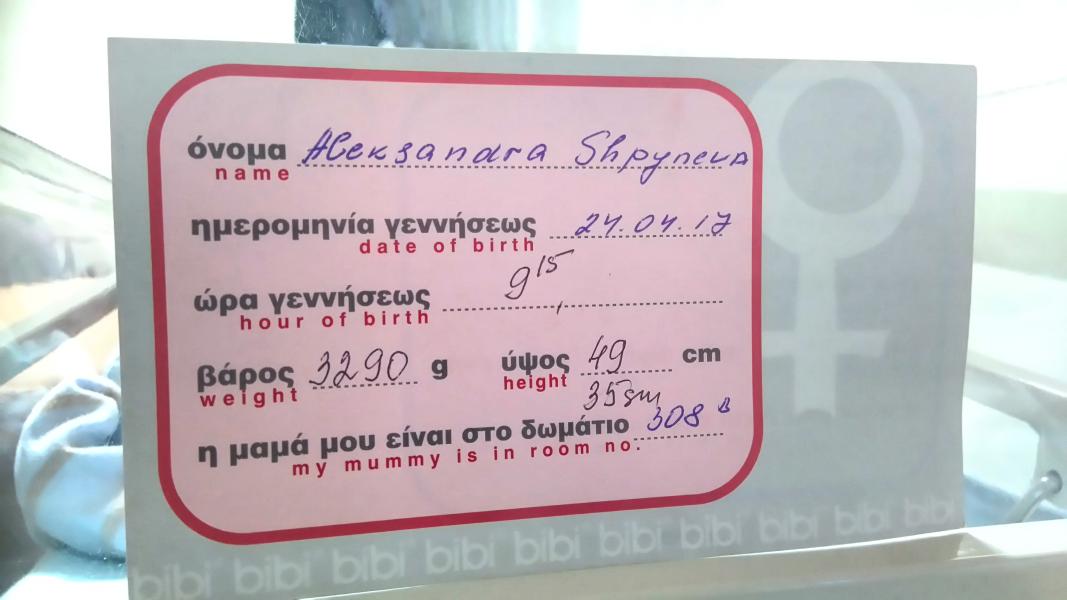 όνομα Aleksandra Shpyneva
name
ημερομηνία γεννήσεως 24.04.17
date of birth
ώρα γεννήσεως 9 15
hour of birth
βάρος 3290 g ύψος 49 cm
weight height
35sm
η μαμά μου είναι στο δωμάτιο 308 B
my mummy is in room no.
bibi bibi bibi bibi bibi bibi bibi bibi bibi